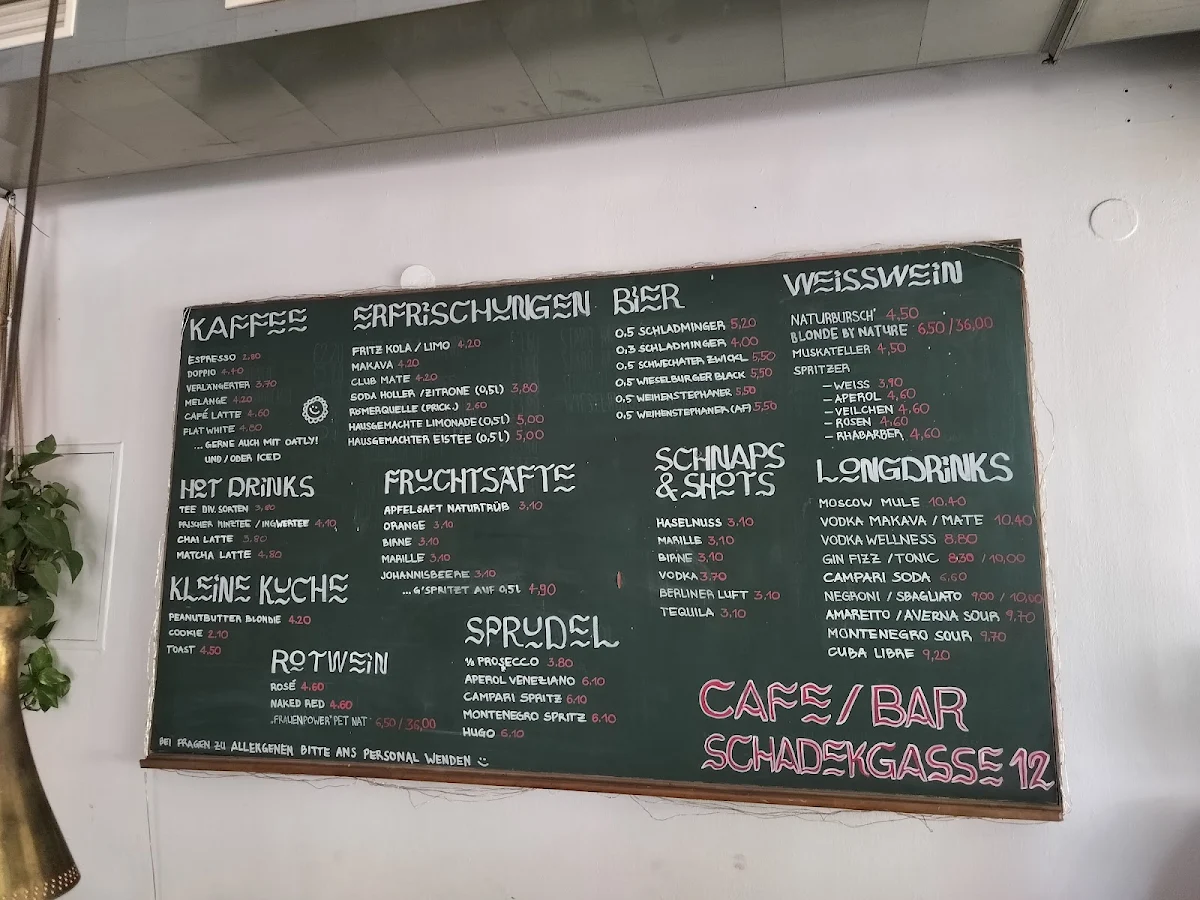 KAFFEE
ESPRESSO 2.80
DOPPIO 4.40
VERLÄNGERTER 3.70
MELANGE 4.20
CAFÉ LATTE 4.60
FLAT WHITE 4.80
... GERNE AUCH MIT OATLY!
UND/ODER ICED
HOT DRINKS
TEE DIV. SORTEN 3.80
FRISCHER MINZTEE / INGWERTEE 4,10
CHAI LATTE 3.80
MATCHA LATTE 4,80
KLEINE KUCHE
PEANUTBUTTER BLONDIE 4.20
COOKIE 2.10
TOAST 4.50
ROTWEIN
ROSÉ 4.60
NAKED RED 4.60
"FRAUENPOWER" PET NAT 6,50 / 36,00
BEI FRAGEN ZU ALLERGENEN BITTE ANS PERSONAL WENDEN
ERFRISCHUNGEN
FRITZ KOLA / LIMO 4,20
MAKAVA 4.20
CLUB MATE 4.20
SODA HOLLER / ZITRONE (0,5L) 3,80
RÖMERQUELLE (PRICK.) 2.60
HAUSGEMACHTE LIMONADE (0,5L) 5,00
HAUSGEMACHTER EISTEE (0,5L) 5,00
FRUCHTSÄFTE
APFELSAFT NATURTRÜB 3,10
ORANGE 3.10
BIRNE 3.10
MARILLE 3.10
JOHANNISBEERE 3,10
... G'SPRITZT AUF 0,5L 4,90
SPRUDEL
PROSECCO 3.80
APEROL VENEZIANO 6.10
CAMPARI SPRITZ 6.10
MONTENEGRO SPRITZ 6.10
HUGO 6.10
BIER
0,5 SCHLADMINGER 5,20
0,3 SCHLADMINGER 4,00
0,5 SCHWECHATER ZWICKL 5,50
0,5 WIESELBURGER BLACK 5,50
0,5 WEIHENSTEPHANER 5,50
0,5 WEIHENSTEPHANER (AF) 5,50
SCHNAPS
& SHOTS
HASELNUSS 3.10
MARILLE 3,10
BIRNE 3,10
VODKA 3.70
BERLINER LUFT 3.10
TEQUILA 3.10
WEISSWEIN
NATURBURSCH' 4,50
BLONDE BY NATURE 6.50 / 36,00
MUSKATELLER 4,50
SPRITZER
- WEISS 3,90
- APEROL 4,60
- VEILCHEN 4.60
- ROSEN 4.60
- RHABARBER 4,60
LONGDRINKS
MOSCOW MULE 10.40
VODKA MAKAVA / MATE 10.40
VODKA WELLNESS 8.80
GIN FIZZ / TONIC 8.30 / 10,00
CAMPARI SODA 6,60
NEGRONI / SBAGLIATO 9,00 / 10,00
AMARETTO / AVERNA SOUR 9.70
MONTENEGRO SOUR 9,70
CUBA LIBRE 9,20
CAFE / BAR
SCHADEKGASSE 12